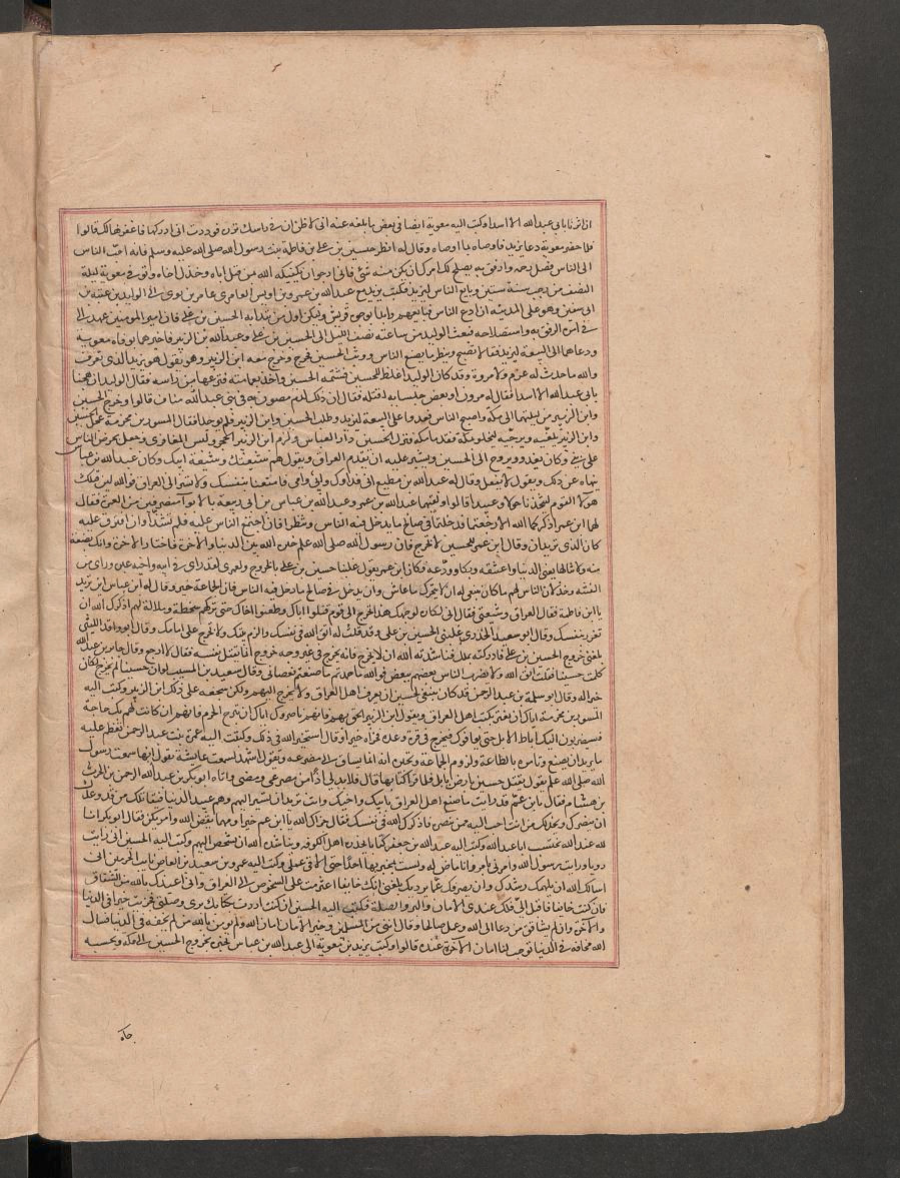 ان اثرنا بابي عبد الله الا اسدا وكتب اليه معوية ايضا في بعض ما بلغه عنه اني لاظن ان في راسك نزوة فوددت اني ادركها فاغفرها لك قالوا
فلما حضر معوية دعا يزيد فاوصاه بما اوصاه وقال له انظر حسين بن علي بن فاطمة بنت رسول الله صلى الله عليه وسلم فانه احب الناس
الى الناس فصل رحمه وارفق به يصلح لك امره فان يكن منه شئ فاني ارجو ان يكفيكه الله بمن قتل اباه وخذل اخاه وتوفي معوية ليلة
النصف من رجب سنة ستين وبايع الناس ليزيد فكتب يزيد مع عبد الله بن عمرو بن اويس العامري عامر بن لوي الى الوليد بن عتبة بن
ابي سفين وهو على المدينة ان ادع الناس فبايعهم وابدا بوجوه قريش وليكن اول من تبدا به الحسين بن علي فان امير المومنين عهد الي
في امره الرفق به واستصلاحه فبعث الوليد من ساعته نصف الليل الى الحسين بن علي وعبد الله بن الزبير فاخبرهما بوفاة معوية
ودعاهما الى البيعة ليزيد فقالا نصبح وينظر ما يصنع الناس ووثب الحسين فخرج وخرج معه ابن الزبير وهو يقول هو يزيد الذي تعرف
والله ما حدث له عزم ولا مروة وقد كان الوليد اغلظ للحسين فشتمه الحسين واخذ بعمامته فنزعها من راسه فقال الوليد ان هجنا
بابي عبد الله الا اسدا فقال له مروان او بعض جلسائه اقتله فقال ان ذلك لدم مصون به في بني عبد مناف قالوا وخرج الحسين
وابن الزبير من ليلتهما الى مكة واصبح الناس فغدوا على البيعة ليزيد وطلب الحسين وابن الزبير فلم يوجدا فقال المسور بن مخرمة عجل الحسين
وابن الزبير يلفته ويرجيه ليخلو بمكة فقدما مكة فنزل الحسين دار العباس ولزم ابن الزبير الحجر ولبس المغافري وجعل يحرض الناس
على بني وكان يغدو ويروح الى الحسين ويشير عليه ان يقدم العراق ويقول هم شيعتك وشيعة ابيك وكان عبد الله بن عباس
ينهاه عن ذلك ويقول لا تفعل وقال له عبد الله بن مطيع اني فداوك وابي وامي فامتعنا بنفسك ولا تسر الى العراق فوالله لين قتلك
هولا القوم ليتخذنا خولا وعبيدا قالوا ولقيهما عبد الله بن عمر وعبد الله بن عباس بن ابي ربيعة بالابوا منصرفين من العمرة فقال
لهما ابن عمر اذكركما الله الا رجعتما فدخلتما في صالح ما يدخل فيه الناس وتنظرا فان اجتمع الناس عليه فلم تشذا وان افترق عليه
كان الذي تريدان وقال ابن عمر للحسين لا تخرج فان رسول الله صلى الله علم خيره الله بين الدنيا والاخرة فاختار الاخرة وانك بضعة
منه ولا تنالها يعني الدنيا واعتنقه وبكا وودعه فكان ابن عمر يقول غلبنا حسين بن علي بالخروج ولعمري لقد راى في ابيه واخيه عبرة وراى من
الفتنة وخذلان الناس لهم ما كان ينبغي له ان لا يتحرك ما عاش وان يدخل في صالح ما دخل فيه الناس فان الجماعة خير وقال له ابن عباس اين تريد
يا ابن فاطمة فقال العراق وشيعتي فقال اني لكاره لوجهك هذا تخرج الى قوم قتلوا اباك وطعنوا اخاك حتى تركهم سخطة وملالة لهم اذكرك الله ان
تغرر بنفسك وقال ابو سعيد الخدري غلبني الحسين بن علي وقد قلت له اتق الله في نفسك والزم بيتك ولا تخرج على امامك وقال ابو واقد الليثي
بلغني خروج الحسين بن علي فادركته بملل فناشدته الله ان لا يخرج فانه يخرج في غير وجه خروج انما يقتل نفسه فقال لا ارجع وقال جابر بن عبد الله
كلمت حسينا فقلت اتق الله ولا تضرب الناس بعضهم ببعض فوالله ما حمدتم ما صنعتم فعصاني وقال سعيد بن المسيب لو ان حسينا لم يخرج لكان
خيرا له وقال ابو سلمة بن عبد الرحمن قد كان ينبغي لحسين ان يعرف اهل العراق ولا يخرج اليهم ولكن شجعه على ذلك ابن الزبير وكتب اليه
المسور بن مخرمة اياك ان تغتر بكتب اهل العراق ويقول ابن الزبير الحق بهم فانهم ناصروك اياك ان تبرح الحرم فانهم ان كانت لهم بك حاجة
فسيضربون اليك اباط الابل حتى يوافوك فتخرج في قوة وعدة فجزاه خيرا وقال استخير الله في ذلك وكتبت اليه عمرة بنت عبد الرحمن تعظم عليه
ما يريد ان يصنع وتامره بالطاعة ولزوم الجماعة وتخبره انه انما يساق الى مصرعه وتقول اشهد لسمعت عايشة تقول انها سمعت رسول
الله صلى الله علم يقول يقتل حسين بارض بابل فلما قرا كتابها قال فلا بد لي اذا من مصرعي ومضى واتاه ابو بكر بن عبد الرحمن بن الحرث
بن هشام فقال يا ابن عم قد رايت ما صنع اهل العراق بابيك واخيك وانت تريد ان تسير اليهم وهم عبيد الدنيا فيقاتلك من قد وعدك
ان ينصرك ويخذلك من انت احب اليه ممن ينصره فاذكرك الله في نفسك فقال جزاك الله يا ابن عم خيرا ومهما يقض الله من امر يكن فقال ابو بكر انا
لله عند الله نحتسب ابا عبد الله وكتب اليه عبد الله بن جعفر كتابا يحذره اهل الكوفة ويناشده الله ان يشخص اليهم وكتب اليه الحسين اني رايت
رويا ورايت رسول الله وامرني بامر وانا ماض له ولست بمخبر بها احدا حتى الاقي عملي وكتب اليه عمرو بن سعيد بن العاص نايب الحرمين اني
اسال الله ان يلهمك رشدك وان يصرفك عما يرديك بلغني انك اعتزمت على الشخوص الى العراق واني اعيذك بالله من الشقاق
فان كنت خائفا فاقبل الي فلك عندي الامان والبر والصلة فكتب اليه الحسين ان كنت اردت بكتابك بري وصلتي فجزيت خيرا في الدنيا
والاخرة وانه لم يشاقق من دعا الى الله وعمل صالحا وقال انني من المسلمين وخير الامان امان الله ولم يومن بالله من لم يخفه في الدنيا فنسال
الله مخافة في الدنيا توجب لنا امان الاخرة عنده قالوا وكتب يزيد بن معوية الى عبد الله بن عباس يخبره بخروج الحسين الى مكة ويحسبه
جاه